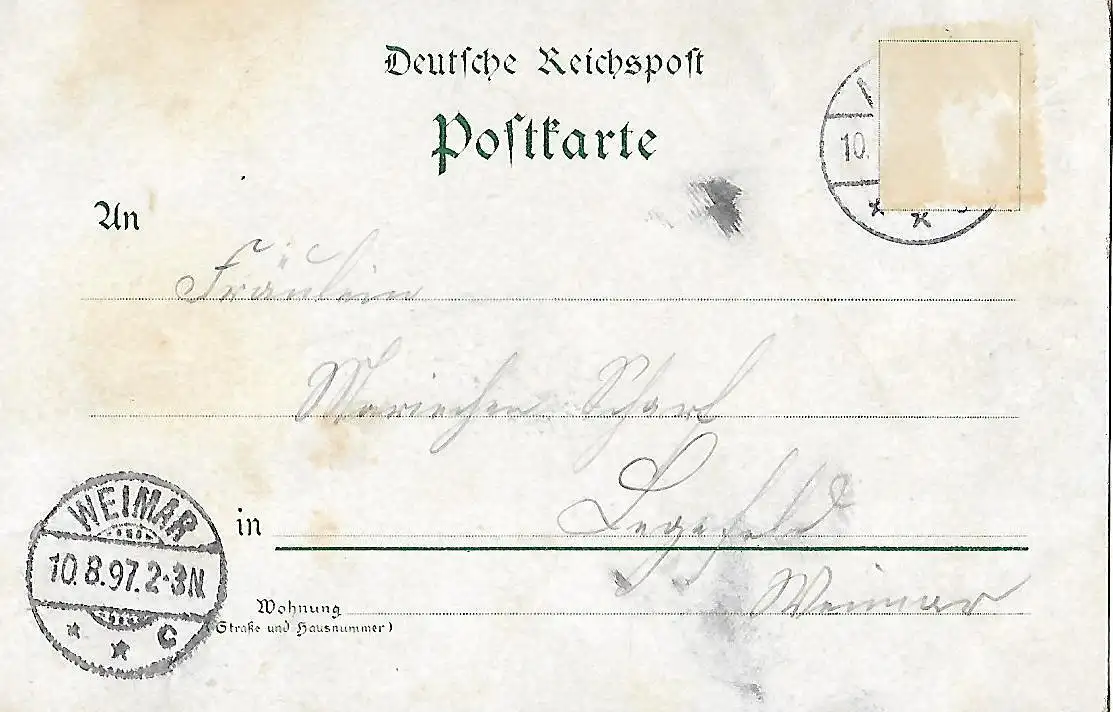 Deutsche Reichspost
Postkarte
10.
An
Fräulein
Mariechen Scharf
WEIMAR
10.8.97.2-3N
C
in
Legefeld
Weimar
Wohnung
(Straße und Hausnummer)